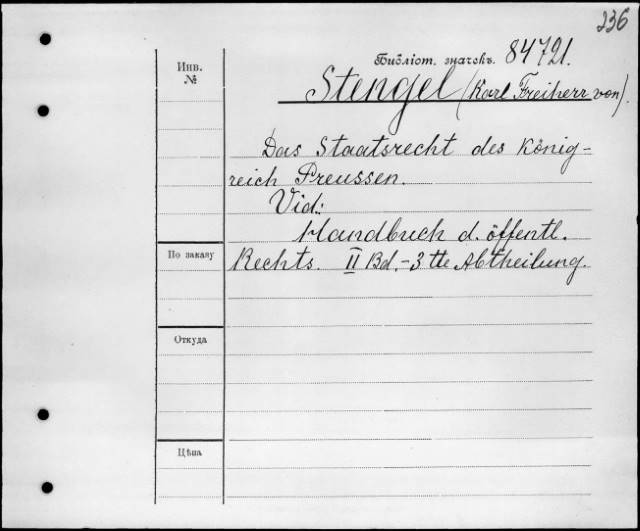 236
Библіот. значекъ. 84721.
Инв.
№
Stengel (Karl Freiherr von).
Das Staatsrecht des König-
reich Preussen.
Vid.:
Handbuch d. öffentl.
По заказу
Rechts. II Bd. - 3 tte Abtheilung.
Откуда
Цѣна